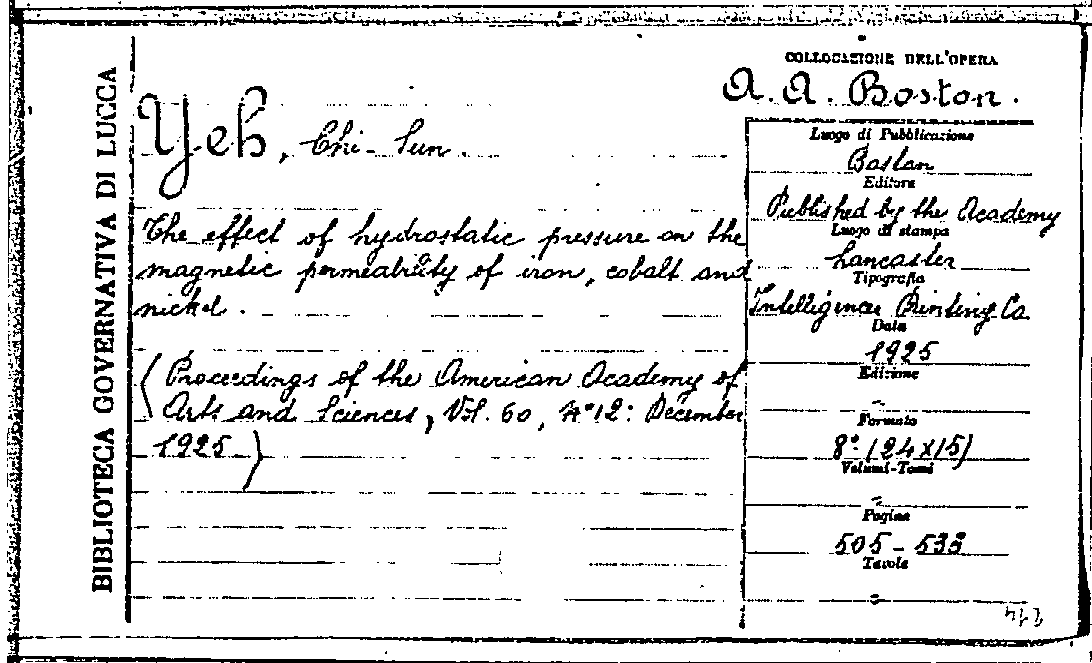 BIBLIOTECA GOVERNATIVA DI LUCCA
Yeh, Chi-Sun.
The effect of hydrostatic pressure on the
magnetic permeability of iron, cobalt and
nickel.
(Proceedings of the American Academy of
Arts and Sciences, Vol. 60, N° 12: December
1925)
COLLOCAZIONE DELL'OPERA
A. A. Boston.
Luogo di Pubblicazione
Boston
Editore
Published by the Academy
Luogo di stampa
Lancaster
Tipografia
Intelligencer Printing Co.
Data
1925
Edizione
-
Formato
8° (24x15)
Volumi-Tomi
-
Pagine
505-533
Tavole
-